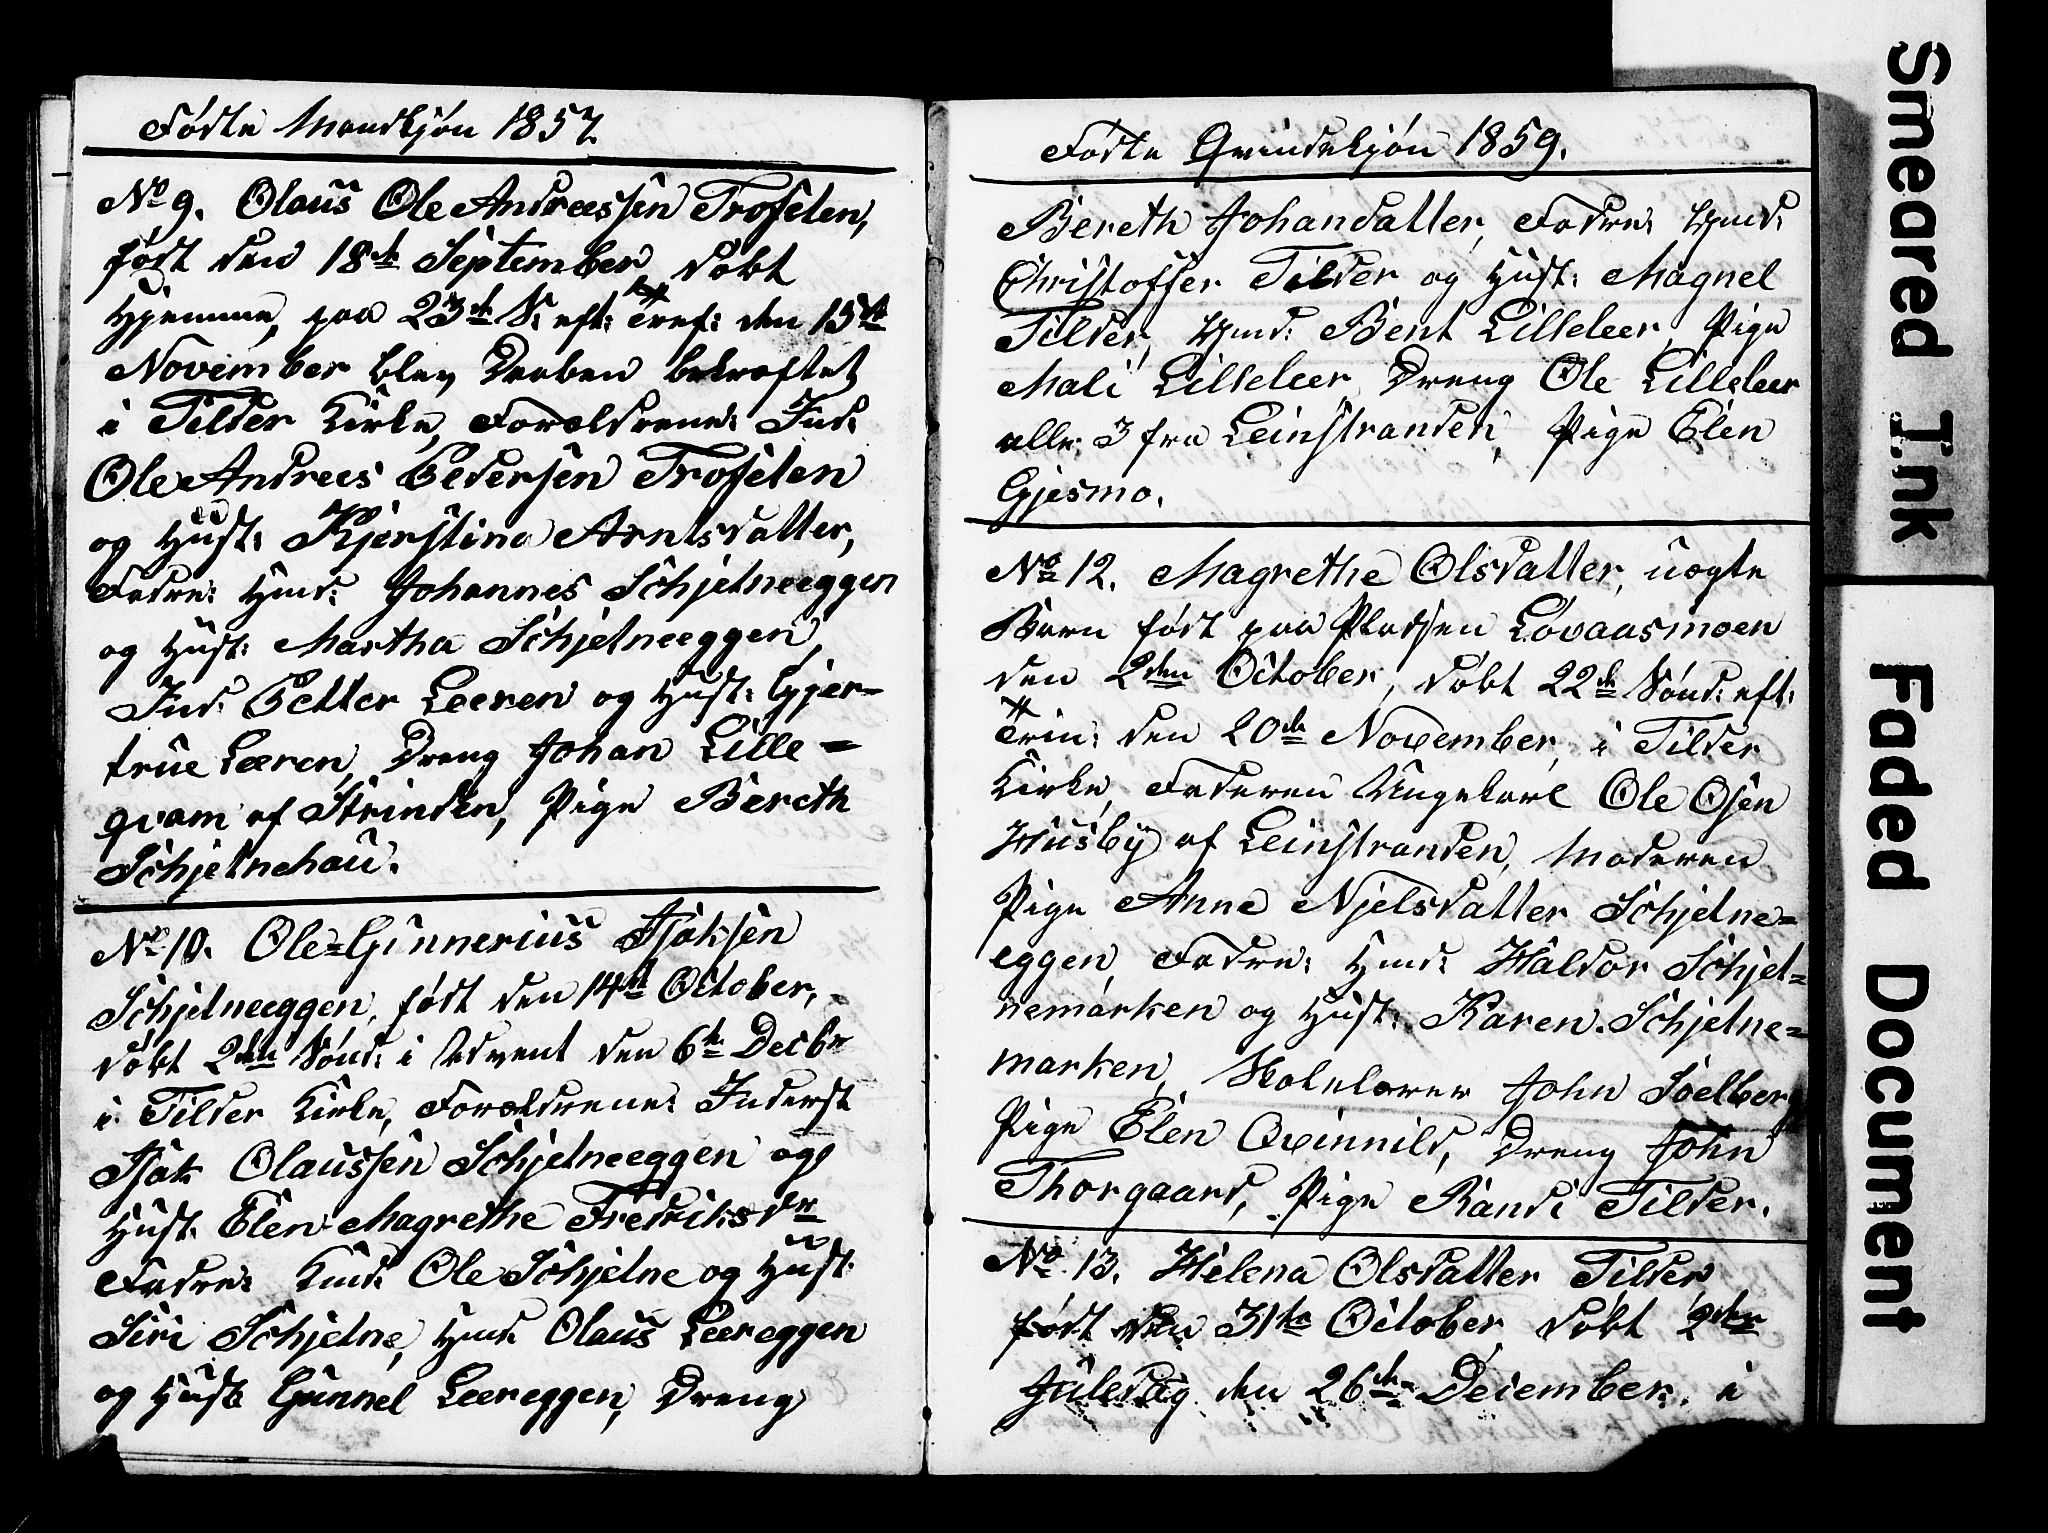 Fødte Mandkjøn 1857
No 9. Olaus Ole Andreessen Troselen,
født den 18de September, døbt
Hjemme, paa 23de S. eft: Tref: den 15de
November blev Daaben bekræftet
i Tilder Kirke, Forældrene: Ind:
Ole Andrees Pedersen Troselen
og Hust: Kjerstina Arntsdatter,
Fadre: Gmd: Johannes Schjetneeggen
og Hust: Martha Schjetneeggen,
Ind: Petter Leeren og Hust: Gjer-
true Leeren, Dreng Johan Lille=
qvam af Strinden, Pige Bereth
Schjetnehau.
No 10. Ole=Ginnerius Isaksen
Schjetneeggen, født den 14de October,
døbt 2den Sønd: i Advent den 6te Decbr
i Tilder Kirke, Forældrene: Inderst
Isak Olaussen Schjetneeggen og
Hust. Elen Magrethe Fredriksdr
Fadre: Gmd: Ole Schjetne og Hust:
Siri Schjetne, Gmd: Olaus Leereggen
og Hust: Gunnel Leereggen, Dreng
Fødte Qvindekjøn 1859.
Bereth Johandatter, Fadre: Gmd:
Christoffer Tilder og Hust: Magnel
Tilder, Gmd: Bent Lilleleer, Pige
Mali Lilleleer, Dreng Ole Lilleleer
alle 3 fra Leinstranden, Pige Elen
Gjesmo.
No 12. Magrethe Olsdatter, uægte
Barn født paa Pladsen Løvaasmoen
den 2den October, døbt 22de Sønd: eft:
Trin: den 20de November, i Tilder
Kirke, Faderen Ungekarl Ole Osen
Husby af Leinstranden, Moderen
Pige Anne Njelsdatter Schjetne=
eggen, Fadre: Gmd: Haldor Schjet=
nemarken og Hust: Karen Schjetne=
marken, Skolelærer John Soelber,
Pige Elen Qvinnild, Dreng John
Thorgaard, Pige Randi Tilder.
No 13. Helena Olsdatter Tilder
født den 31te October, døbt 2den
Juledag den 26de December, i
Smeared Ink
Faded Document